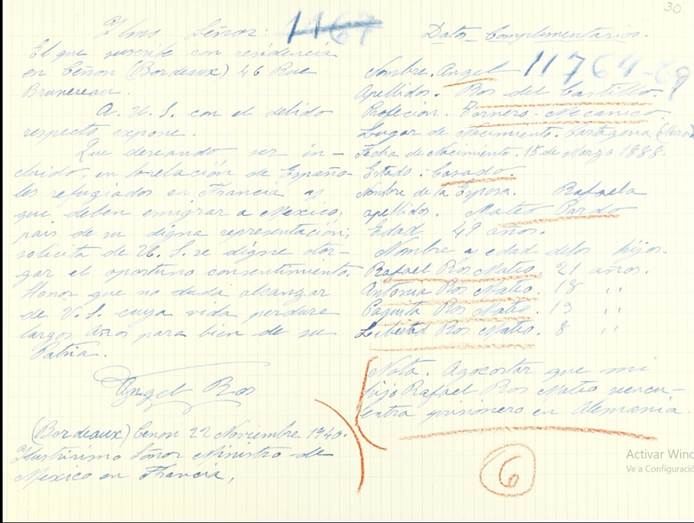 30
Ylmo Señor: 1167
El que suscribe con residencia
en Cenon (Bordeaux) 46 Rue
Brunereau.
A. U. S. con el debido
respecto expone.
Que deseando ser in-
cluido, en la relación de Españo-
les refugiados en Francia
que, deben emigrar a Mexico,
pais de su digna representación,
solicita de U. S. se digne otor-
gar el oportuno consentimiento.
Honor que no duda alcanzar
de V. S. cuya vida perdure
largos años para bien de su
Patria.
Angel Ros
(Bordeaux) Cenon 22 Noviembre 1940.
Yllustrisimo Señor Ministro de
Mexico en Francia,
Datos Complimentarios.
11764-69
Nombre. Angel
Apellidos. Ros del Castillo.
Profecion. Tornero-Mecanico
Lugar de Nacimiento. Cartagena
Fecha de Nacimiento. 15 de Marzo 1888.
Estado. Casado.
Nombre de la Esposa. Rafaela
apellidos. Mateo Pardo
Edad 49 años.
Nombre y edad de los hijos.
Rafael Ros Mateo. 21 años.
Antonia Ros Mateo. 18 "
Paquita Ros Mateo. 13 "
Libertad Ros Mateo. 8 "
Nota. Agocostar que mi
hijo Rafael Ros Mateo se encu-
entra prisionero en Alemania.
6
Activar Wind
Ve a Configuració